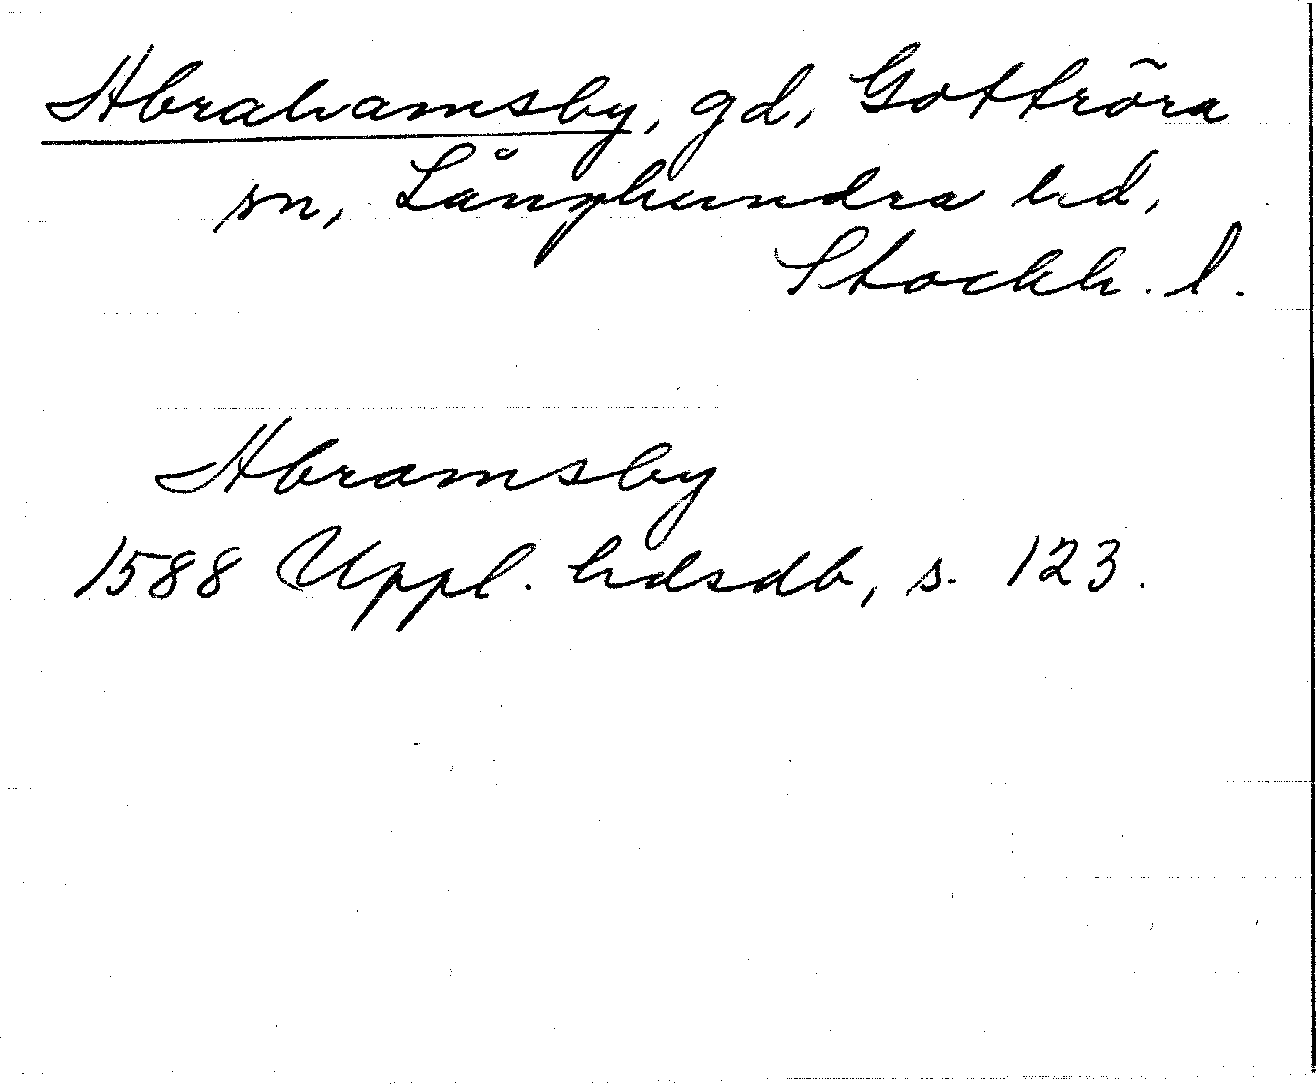 Abrahamsby, gd, Gottröra
sn, Långhundra hd,
Stockh. l.
Abramsby
1588 Uppl. hdsdb, s. 123.